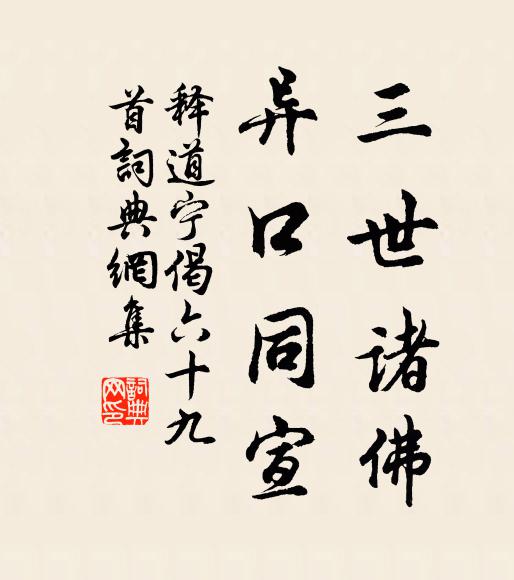 三世诸佛
异口同宣
释道宁偈六十九
首詞典網集
詞典网印